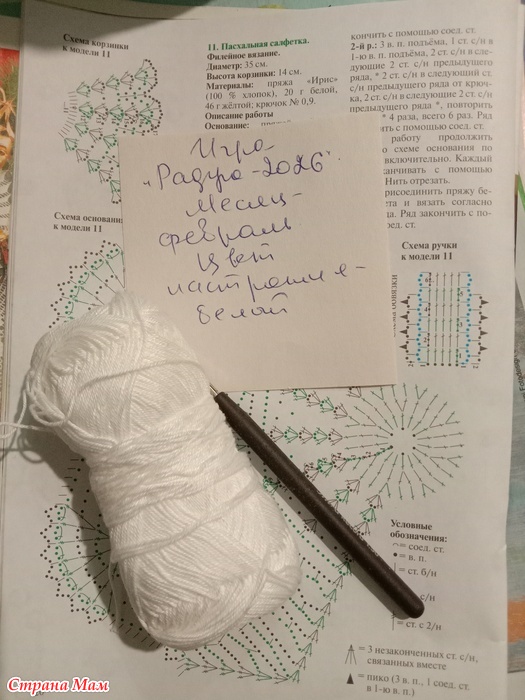 Схема корзинки
к модели 11
11. Пасхальная салфетка.
Филейное вязание.
Диаметр: 35 см.
Высота корзинки: 14 см.
Материалы: пряжа «Ирис»
(100 % хлопок), 20 г белой,
46 г жёлтой; крючок № 0,9.
Описание работы
Основание:
кончить с помощью соед. ст.
2-й р.: 3 в. п. подъёма, 1 ст. с/н в
1-ю в. п. подъёма, 2 ст. с/н в сле-
дующие 2 ст. с/н предыдущего
ряда, * 2 ст. с/н в следующий ст.
с/н предыдущего ряда от крюч-
ка, 2 ст. с/н в следующие 2 ст. с/н
предыдущего ряда *, повторить
* 4 раза, всего 6 раз. Ряд
ить с помощью соед. ст.
работу продолжить
о схеме основания по
включительно. Каждый
анчивать с помощью
Нить отрезать.
рисоединить пряжу бе-
та и вязать согласно
да. Ряд закончить с по-
ед. ст.
Игра
"Радуга-2026".
Месяц-
февраль
Цвет
настроения-
белый
Схема основания
к модели 11
Схема ручки
к модели 11
Условные
обозначения:
= соед. ст.
= в. п.
= ст. б/н
с/н
= ст. с 2/н
= 3 незаконченных ст. с/н,
связанных вместе
= пико (3 в. п., 1 соед. ст.
в 1-ю в. п.)
Страна Мам